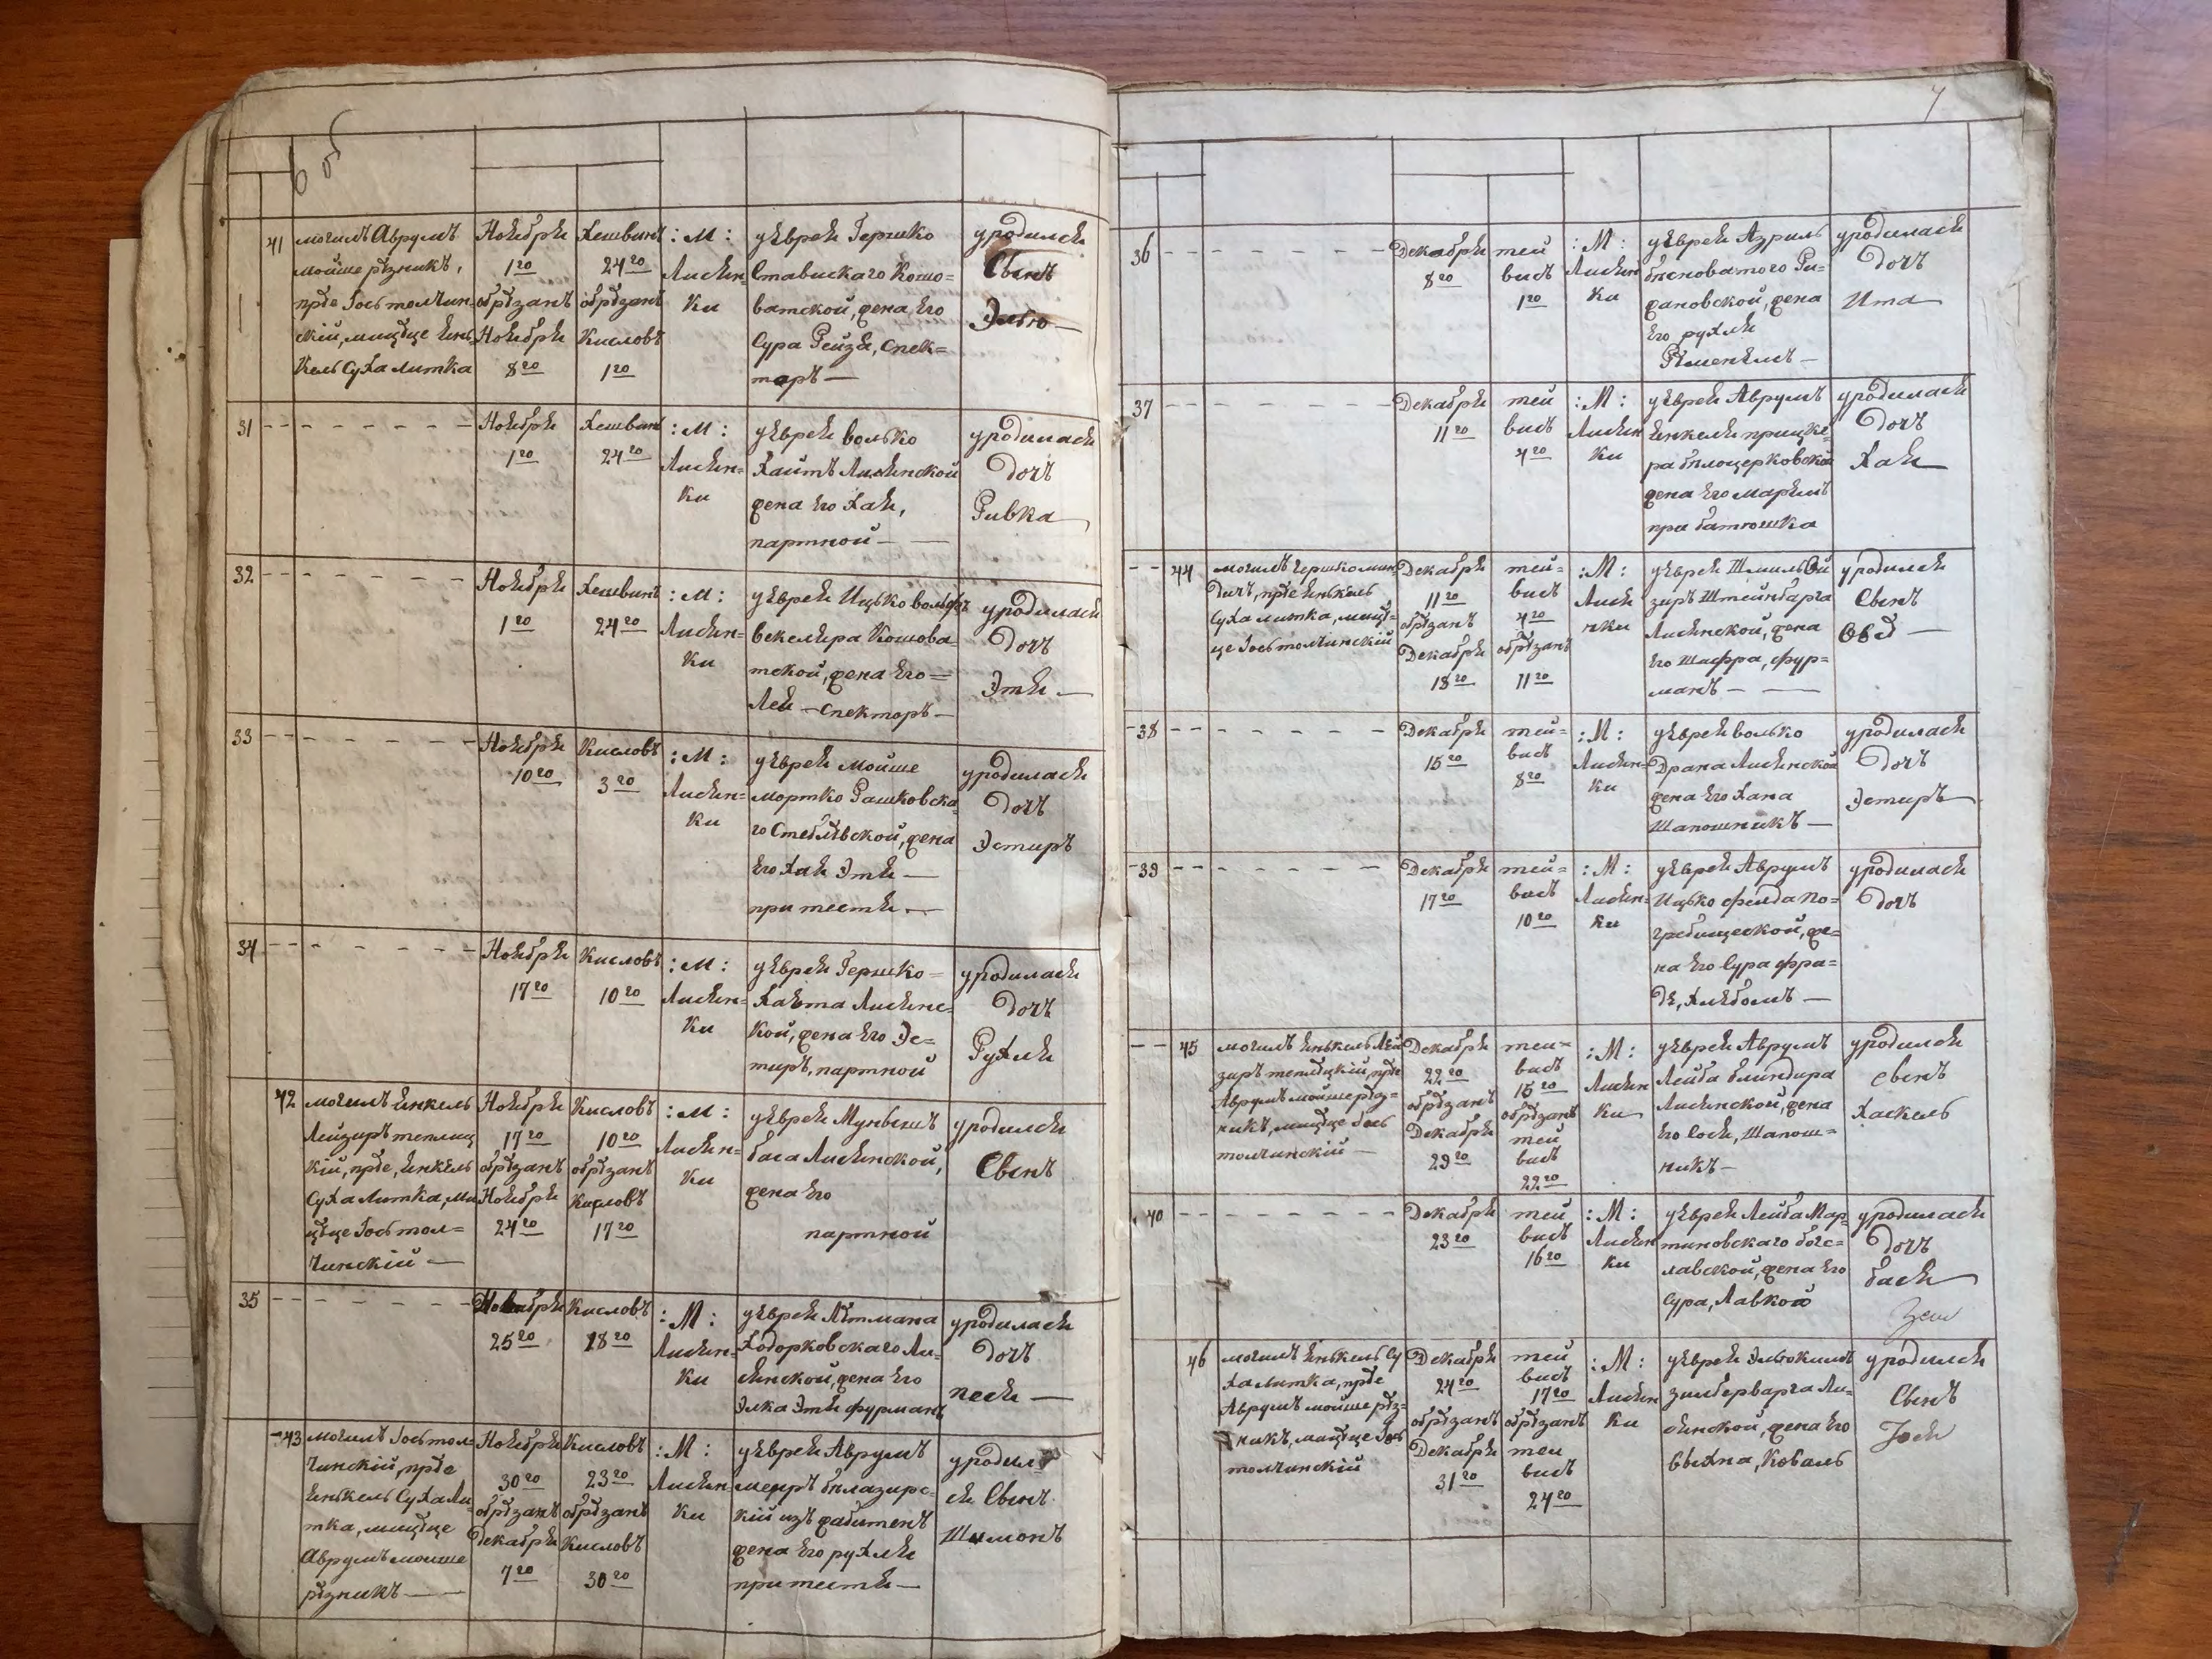 6 об
41
могилъ Аврумъ
мойше рѣзникъ,
прдѣ Іось толчин-
скій, мищце Ень
кель Суха литка
Ноября
1го
обрѣзанъ
Ноября
8го
Хешвинъ
24го
обрѣзанъ
Кисловъ
1го
: М :
Лисян-
ки
уеврея Гершко
Ставискаго Кошо=
ватской, жена Его
Сура Рейзя, спек=
торъ —
уродился
Сынъ
Элью —
31
Ноября
1го
Хешвинъ
24го
: М :
Лисян=
ки
уеврея волько
Хаитъ Лисянской
жена Его Хая,
партной —
уродилася
дочъ
Ривка
32
Ноября
1го
Хешвинъ
24го
: М :
Лисян=
ки
уеврея Ицько вольфъ
векслера Кошова
тской, жена Его =
Лея — спекторъ —
уродилася
дочъ
Этя —
33
Ноября
10го
Кисловъ
3го
: М :
Лисян=
ки
уеврея мойше
мортко Рашковска
го Стеблѣвской, жена
Его Хая Этя —
при тестя —
уродилася
дочъ
Эстиръ
34
Ноября
17го
Кисловъ
10го
: М :
Лисян=
ки
уеврея Гершко =
Хаюта Лисянс=
кой, жена Его Эс=
тиръ, партной
уродилася
дочъ
Рухля
42
могилъ Енкель
Лейзиръ теплиц
кій, прдѣ, Енкель
Суха литка, ми
щце Іось тол=
чинскій —
Ноября
17го
обрѣзанъ
Ноября
24го
Кисловъ
10го
обрѣзанъ
Кисловъ
17го
: М :
Лисян=
ки
уеврея Мунышъ
баса Лисянской,
жена Его
партной
уродился
Сынъ
35
Ноября
25го
Кисловъ
18го
: М :
Лисян=
ки
уеврея Лѣтмана
Ходорковскаго Ли=
сянской, жена Его
Элка Этя фурманъ
уродилася
дочъ
песя —
43
могилъ Іось тол=
чинскій, прдѣ
Енькель Суха ли
тка, мищце
Аврумъ мойше
рѣзникъ —
Ноября
30го
обрѣзанъ
Декабря
7го
Кисловъ
23го
обрѣзанъ
Кисловъ
30го
: М :
Лисян
ки
уеврея Аврумъ
меиръ бѣлазирс
кій изъ жабитенъ
жена Его рухля
при тестя —
уродил
ся Сынъ
Шимонъ
7
36
Декабря
8го
тей
висъ
1го
: М :
Лисян
ки
уеврея Азриль
бѣсноватого Ри=
жановской, жена
Его рухля
Рѣменемъ —
уродилася
дочъ
Ита
37
Декабря
11го
тей
висъ
4го
: М :
Лисян
ки
уеврея Аврумъ
Енкеля прицке=
ра бѣлоцерковской
жена Его маремъ
при батюшка
уродилася
дочъ
Хая
44
могилъ Гершко мин
дичъ, прдѣ Енькель
Суха литка, мищ=
це Іось толчинскій
Декабря
11го
обрѣзанъ
Декабря
18го
тей=
висъ
4го
обрѣзанъ
11го
: М :
Лися
нки
уеврея Шмиль Ой
зиръ Штейнбарга
Лисянской, жена
Его Шифра, фур=
манъ —
уродился
Сынъ
Овед —
38
Декабря
15го
тей=
висъ
8го
: М :
Лисян=
ки
уеврея волько
Драна Лисянской
жена Его Хана
Шапошникъ —
уродилася
дочъ
Эстиръ
39
Декабря
17го
тей=
висъ
10го
: М :
Лисян=
ки
уеврея Аврумъ
Ицько фелда по=
гребищеской, же=
на Его Сура фра=
дя, Хлебомъ —
уродилася
дочъ
45
могилъ Енькель Лей
зиръ теплицкій, прдѣ
Аврумъ мойше рѣз=
никъ, мищце Іось
толчинскій —
Декабря
22го
обрѣзанъ
Декабря
29го
теи=
висъ
15го
обрѣзанъ
тей
висъ
22го
: М :
Лисян
ки
уеврея Аврумъ
Лейба блиндира
Лисянской, жена
Его Сося, Шапош=
никъ —
уродился
Сынъ
Хаскель
40
Декабря
23го
тей
висъ
16го
: М :
Лисян
ки
уеврея Лейба Мар=
тиновскаго богс=
лавской, жена Его
Сура, Лавкой
уродилася
дочъ
бася
46
могилъ Енькель Су
ха литка, прдѣ
Аврумъ мойше рѣз=
никъ, мищце Іось
толчинскій
Декабря
24го
обрѣзанъ
Декабря
31го
тей
висъ
17го
обрѣзанъ
теи
висъ
24го
: М :
Лисян
ки
уеврея Эльокимъ
зилберварга Ли=
сянской, жена Его
Сыхна, Коваль
уродился
Сынъ
Іося